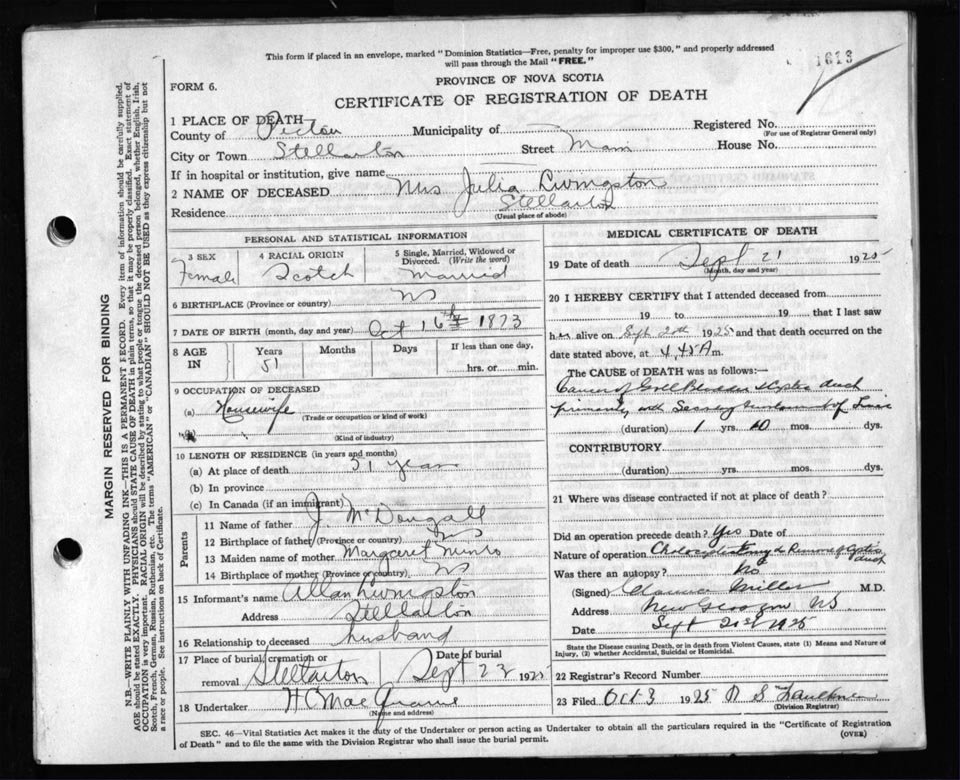 This form if placed in an envelope, marked "Dominion Statistics—Free, penalty for improper use $300," and properly addressed
will pass through the Mail "FREE."
1613
PROVINCE OF NOVA SCOTIA
FORM 6.
CERTIFICATE OF REGISTRATION OF DEATH
1 PLACE OF DEATH
Registered No.
(For use of Registrar General only)
County of Pictou Municipality of
City or Town Stellarton Street Main House No.
If in hospital or institution, give name
2 NAME OF DECEASED Mrs Julia Livingston
Residence Stellarton
(Usual place of abode)
PERSONAL AND STATISTICAL INFORMATION
3 SEX 4 RACIAL ORIGIN 5 Single, Married, Widowed or
Divorced. (Write the word)
Female Scotch Married
6 BIRTHPLACE (Province or country) NS
7 DATE OF BIRTH (month, day and year) Oct 16th 1873
8 AGE IN Years Months Days If less than one day,
51 hrs. or min.
9 OCCUPATION OF DECEASED
(a) Housewife
(Trade or occupation or kind of work)
(b)
(Kind of industry)
10 LENGTH OF RESIDENCE (in years and months)
(a) At place of death 51 years
(b) In province
(c) In Canada (if an immigrant)
Parents
11 Name of father J. McDougall
12 Birthplace of father (Province or country) NS
13 Maiden name of mother Margaret Munro
14 Birthplace of mother (Province or country) NS
15 Informant's name Allan Livingston
Address Stellarton
16 Relationship to deceased husband
17 Place of burial, cremation or Date of burial
removal Stellarton Sept 23 1925
18 Undertaker H C Mac
(Name and address)
MEDICAL CERTIFICATE OF DEATH
19 Date of death Sept 21 1925
(Month, day and year)
20 I HEREBY CERTIFY that I attended deceased from
19 to 19 that I last saw
her alive on Sept 20th 1925 and that death occurred on the
date stated above, at 4.45 A m.
The CAUSE of DEATH was as follows:—
Cancer of Gall Bladder & Cystic duct
primarily with Secondary of Liver
(duration) 1 yrs. 10 mos. dys.
CONTRIBUTORY
(duration) yrs. mos. dys.
21 Where was disease contracted if not at place of death?
Did an operation precede death? Yes Date of
Nature of operation & Removal of Cystic
duct
Was there an autopsy? No
(Signed) Clarence Miller M.D.
Address New Glasgow NS
Date Sept 21st 1925
State the Disease causing Death, or in death from Violent Causes, state (1) Means and Nature of
Injury, (2) whether Accidental, Suicidal or Homicidal.
22 Registrar's Record Number
23 Filed Oct 3 1925
(Division Registrar)
SEC. 46—Vital Statistics Act makes it the duty of the Undertaker or person acting as Undertaker to obtain all the particulars required in the "Certificate of Registration
of Death" and to file the same with the Division Registrar who shall issue the burial permit. (OVER)
MARGIN RESERVED FOR BINDING
N.B.—WRITE PLAINLY WITH UNFADING INK—THIS IS A PERMANENT RECORD. Every item of information should be carefully supplied.
AGE should be stated EXACTLY. PHYSICIANS should STATE CAUSE OF DEATH in plain terms, so that it may be properly classified. Exact statement of
OCCUPATION is very important. RACIAL ORIGIN will be described by stating to what people or tongue the deceased person belonged, whether English, Irish,
Scotch, French, German, Russian, Ruthenian, etc. The terms "AMERICAN" or "CANADIAN" SHOULD NOT BE USED as they express citizenship but not
a race or people. See instructions on back of Certificate.